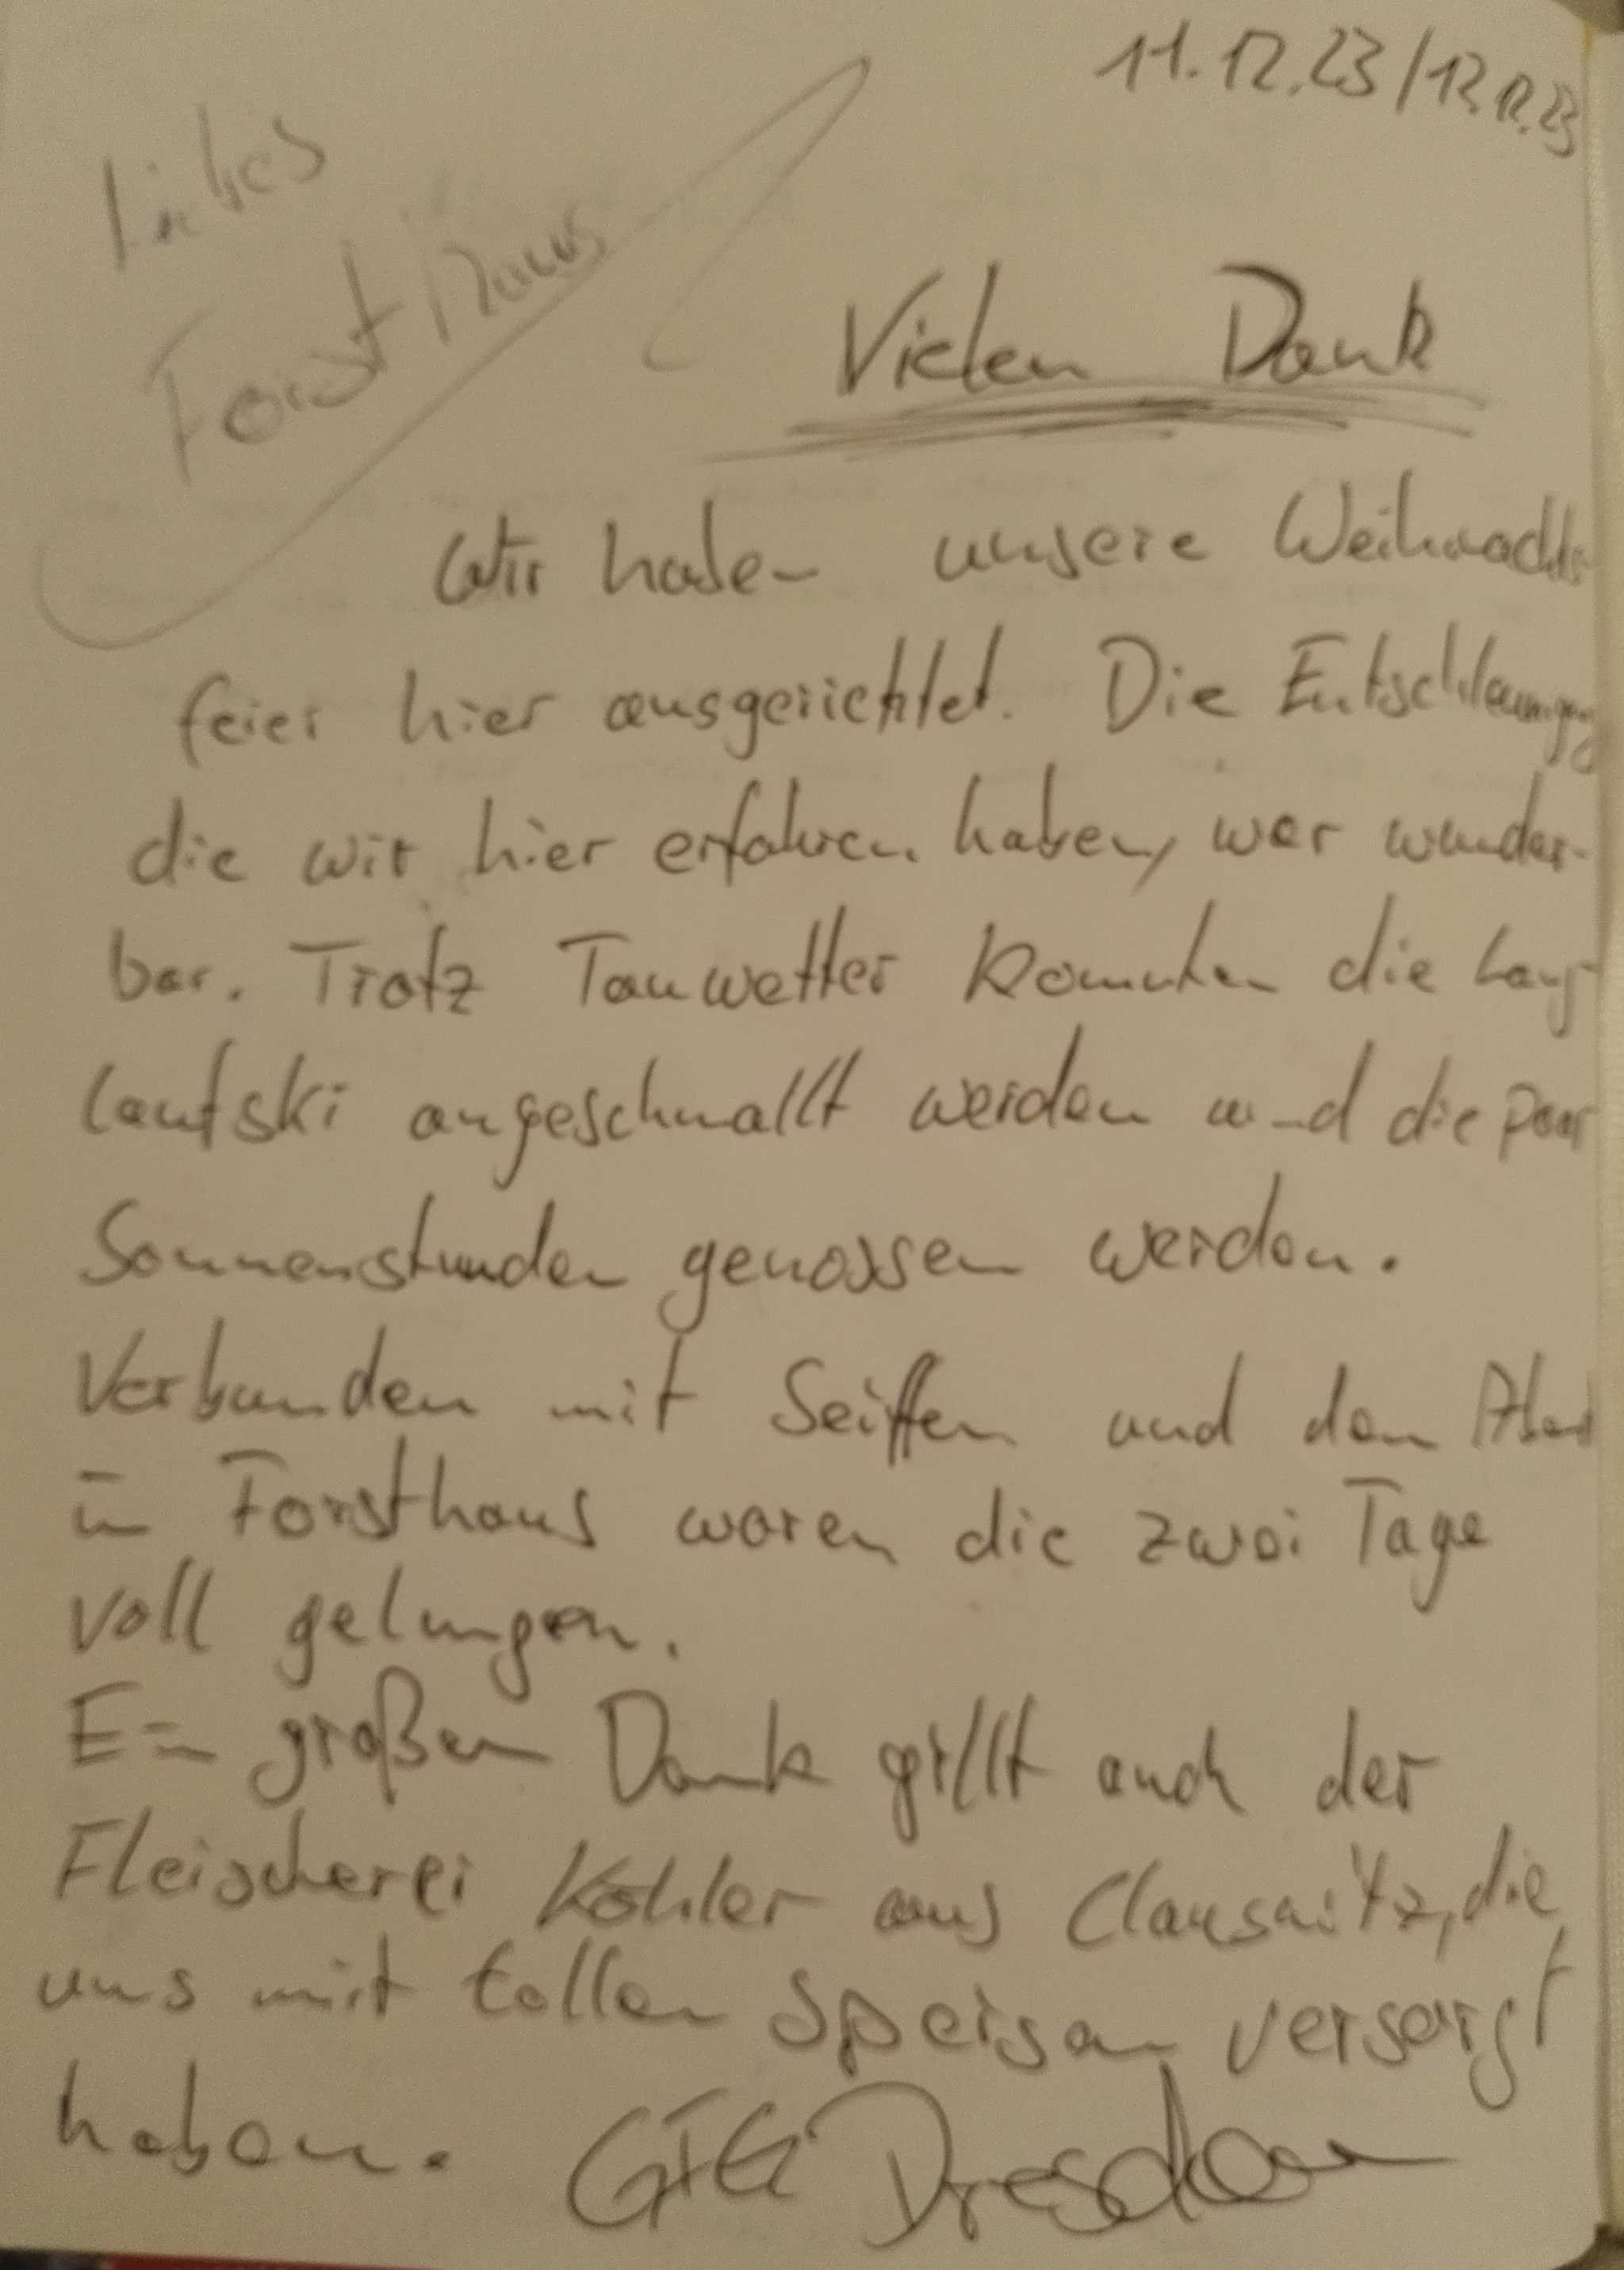 11.12.23/12.12.23
Liebes
Forsthaus
Vielen Dank
Wir haben unsere Weihnachts
feier hier ausgerichtet. Die Entschleunigung
die wir hier erfahren haben, war wunder-
bar. Trotz Tauwetter konnten die Lang-
laufski angeschnallt werden und die paar
Sonnenstunden genossen werden.
Verbunden mit Seiffen und den Abend
im Forsthaus waren die zwei Tage
voll gelungen.
Ein großen Dank gillt auch der
Fleischerei Köhler aus Clausnitz, die
uns mit tollen Speisen versorgt
haben. Dresden